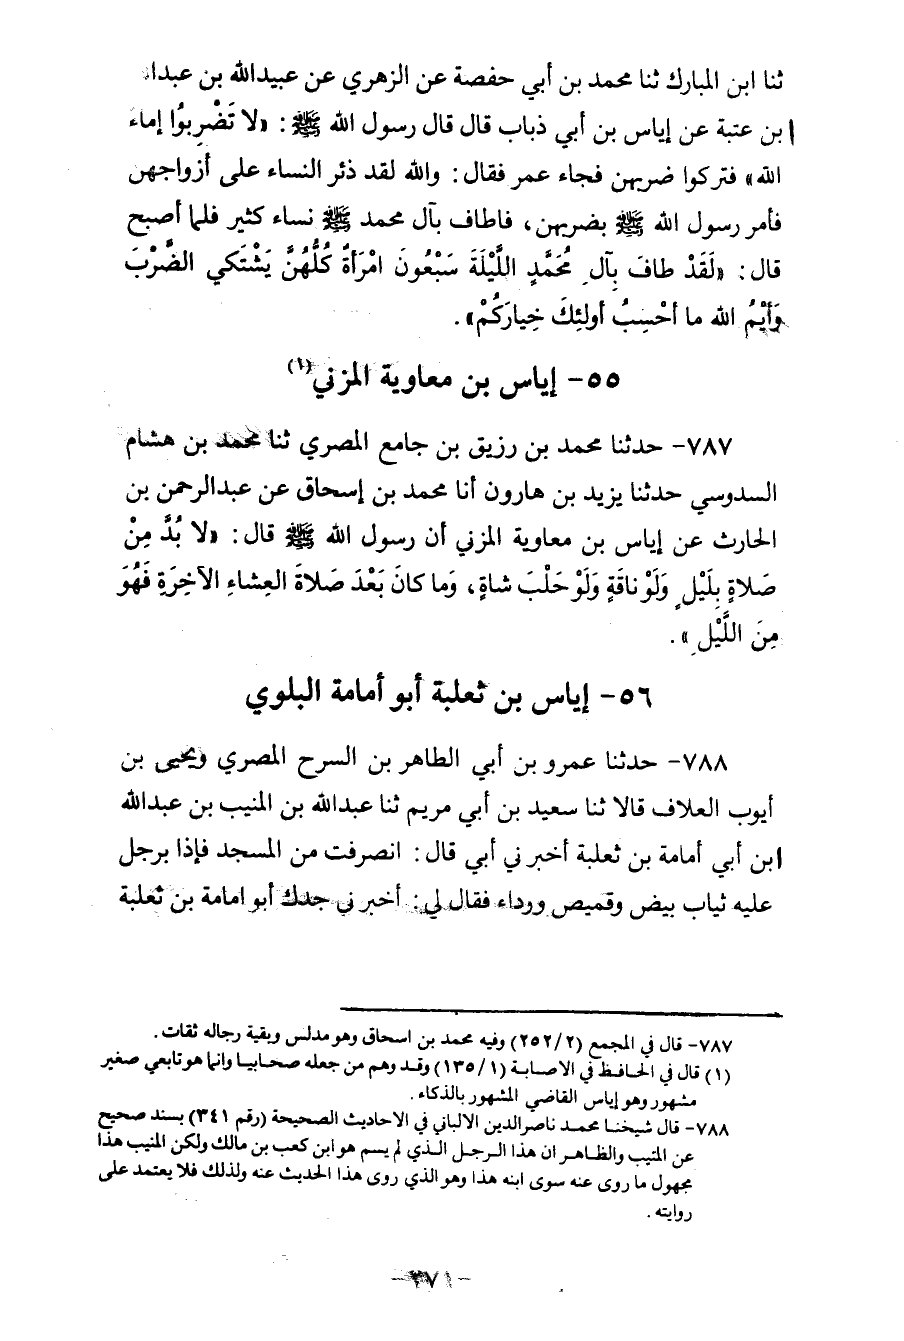 ثنا ابن المبارك ثنا محمد بن أبي حفصة عن الزهري عن عبيدالله بن عبدالله
ابن عتبة عن إياس بن أبي ذباب قال قال رسول الله ﷺ : «لا تَضْرِبوُا إماءَ
الله» فتركوا ضربهن فجاء عمر فقال : والله لقد ذئر النساء على أزواجهن
فأمر رسول الله ﷺ بضربهن، فاطاف بآل محمد ﷺ نساء كثير فلما أصبح
قال : «لَقَدْ طافَ بِآلِ مُحَمَّدٍ اللَّيْلَةَ سَبْعُونَ امْرَأةً كُلُّهُنَّ يَشْتَكي الضَّرْبَ
وَأيْمُ الله ما أحْسِبُ أولئِكَ خِيارَكُمْ» .
٥٥- إياس بن معاوية المزني(١)
٧٨٧- حدثنا محمد بن رزيق بن جامع المصري ثنا محمد بن هشام
السدوسي حدثنا يزيد بن هارون أنا محمد بن إسحاق عن عبدالرحمن بن
الحارث عن إياس بن معاوية المزني أن رسول الله ﷺ قال : «لا بُدَّ مِنْ
صَلاةٍ بِلَيْلٍ وَلَوْ ناقَةٍ وَلَوْ حَلْبَ شاةٍ، وَما كانَ بَعْدَ صَلاةَ العِشاءِ الآخِرَةِ فَهُوَ
مِنَ اللَّيْلِ» .
٥٦- إياس بن ثعلبة أبو أمامة البلوي
٧٨٨- حدثنا عمرو بن أبي الطاهر بن السرح المصري ويحيى بن
أيوب العلاف قالا ثنا سعيد بن أبي مريم ثنا عبدالله بن المنيب بن عبدالله
ابن أبي أمامة بن ثعلبة أخبرني أبي قال : انصرفت من المسجد فإذا برجل
عليه ثياب بيض وقميص ورداء فقال لي : أخبرني جدك أبو امامة بن ثعلبة
٧٨٧- قال في المجمع (٢/ ٢٥٢) وفيه محمد بن اسحاق وهو مدلس وبقية رجاله ثقات .
(١) قال في الحافظ في الاصابة (١/ ١٣٥) وقد وهم من جعله صحابيا وانما هو تابعي صغير
مشهور وهو إياس القاضي المشهور بالذكاء .
٧٨٨- قال شيخنا محمد ناصرالدين الالباني في الاحاديث الصحيحة (رقم ٣٤١) بسند صحيح
عن المنيب والظاهر ان هذا الرجل الذي لم يسم هو ابن كعب بن مالك ولكن المنيب هذا
مجهول ما روى عنه سوى ابنه هذا وهو الذي روى هذا الحديث عنه ولذلك فلا يعتمد على
روايته .
-٢٧١-